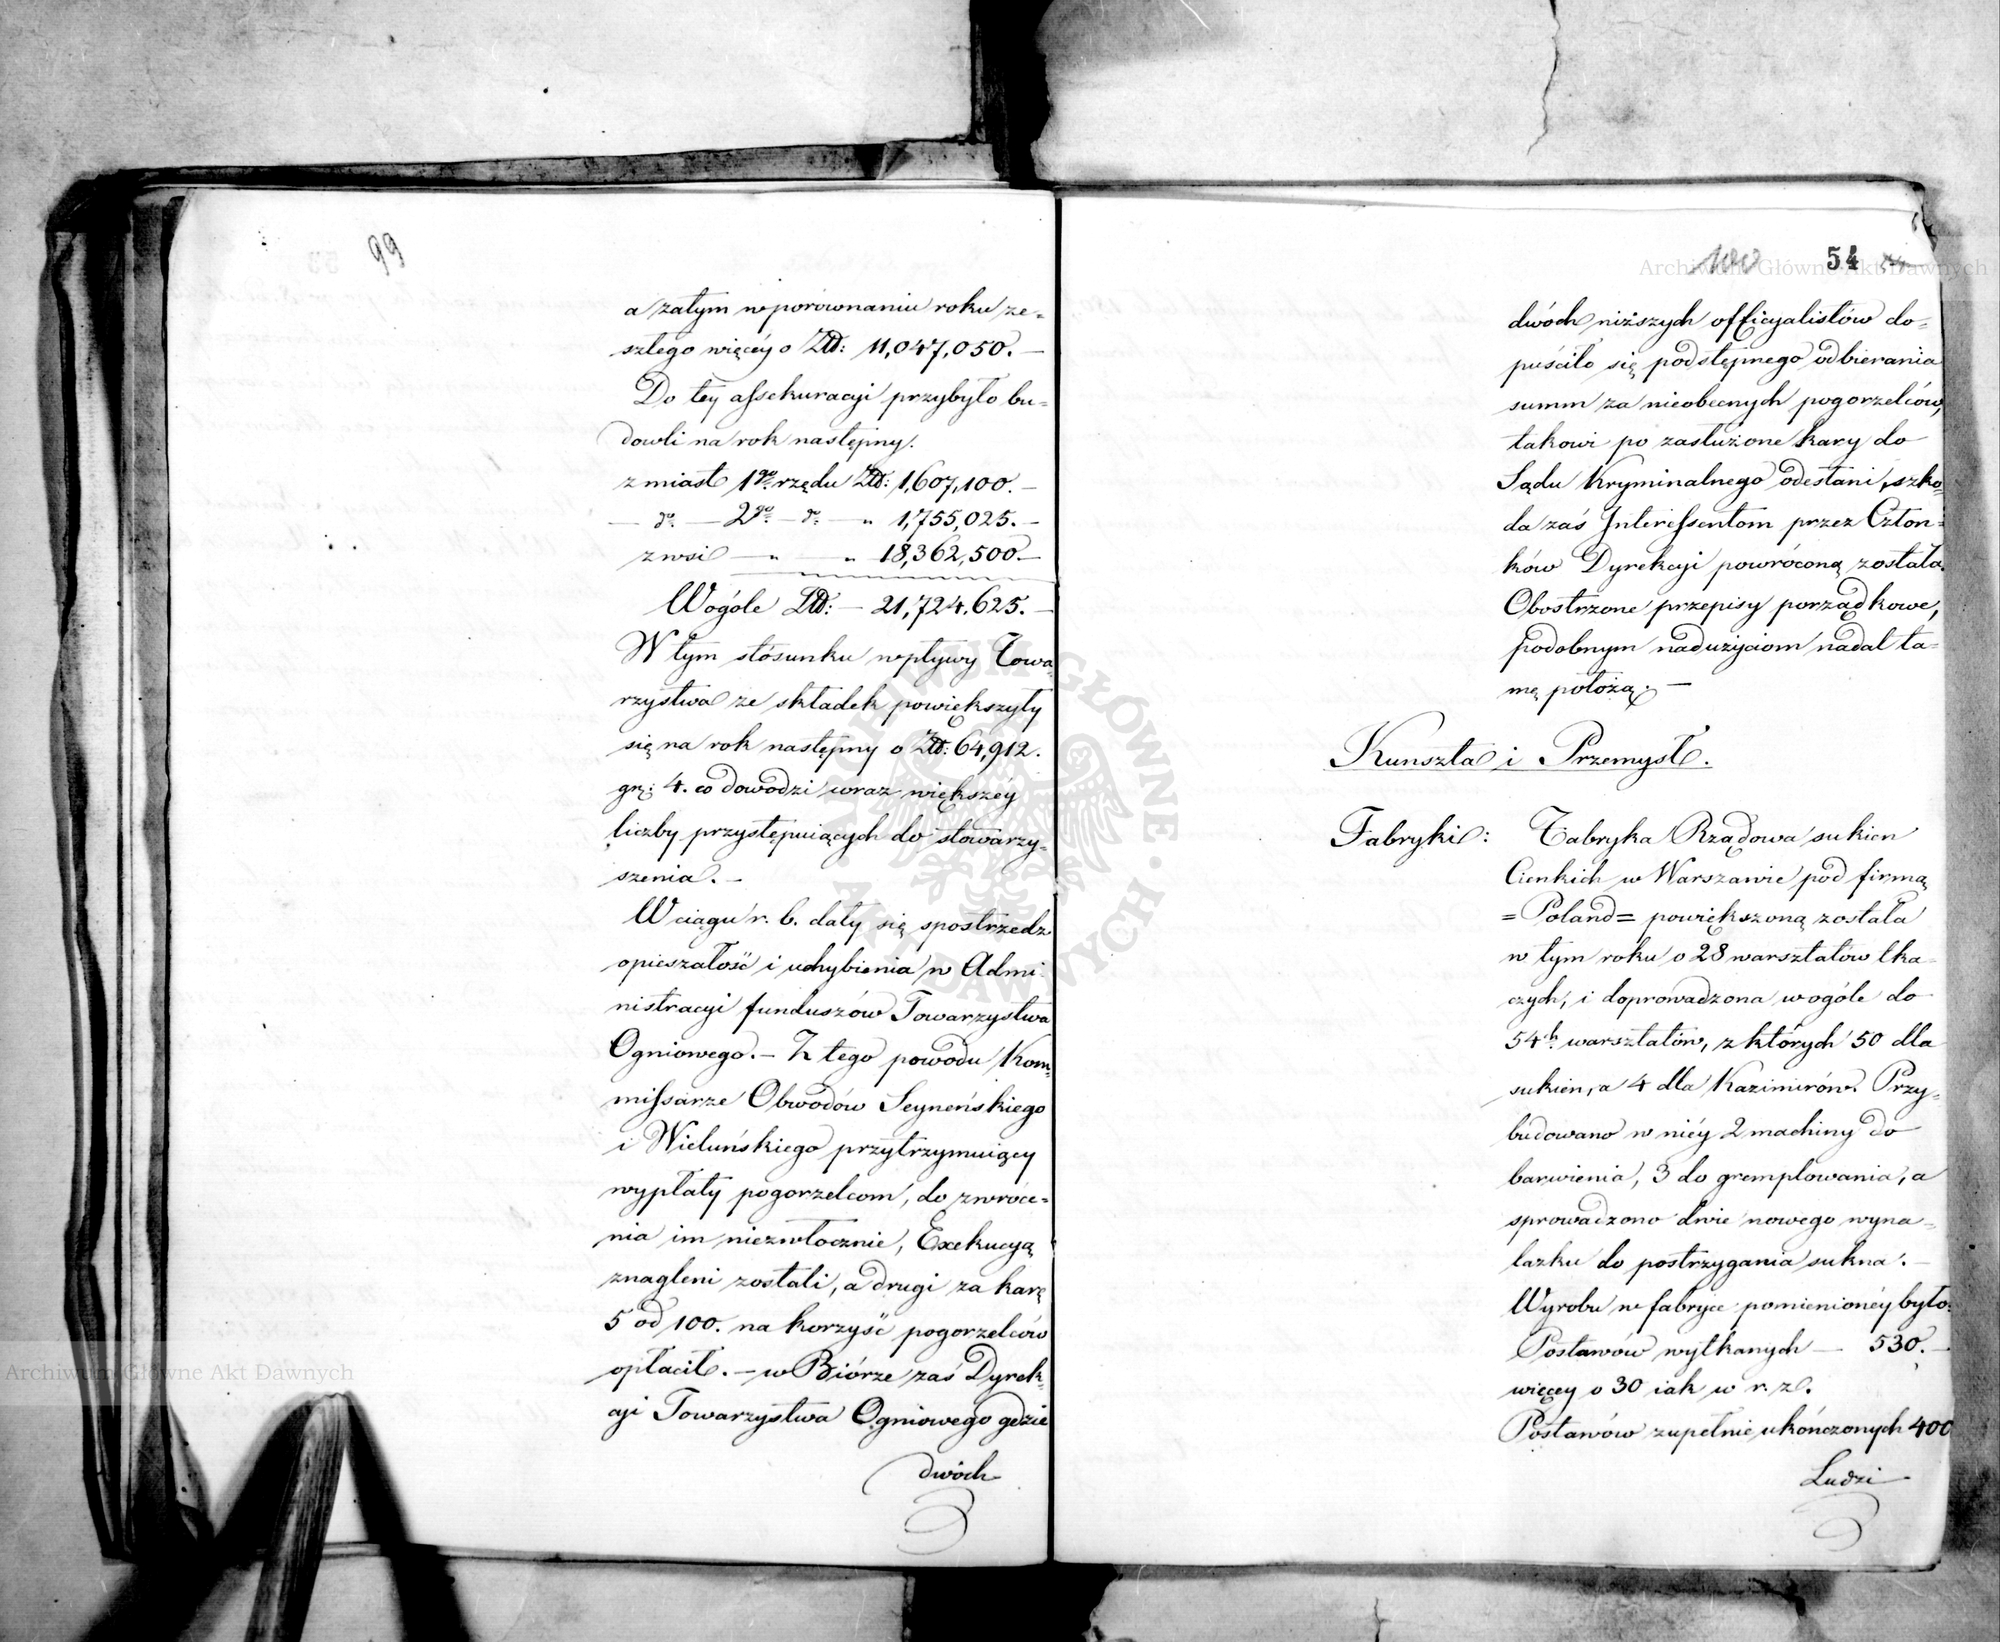 99
a zatym w porównaniu roku ze-
szłego więcéy o Złt: 11,047,050. —
Do tey assekuracyi przybyło bu-
dowli na rok następny.
z miast 1go rzędu Złt: 1,607,100. —
— do — 2go — do — „ 1,755,025. —
z wsi — „ — „ 18,362,500. —
Wogóle Złt: — 21,724,625. —
W tym stósunku wpływy Towa-
rzystwa ze składek powiększyły
się na rok następny o Złt: 64,912.
gr: 4. co dowodzi coraz większéy
liczby przystępuiących do stowarzy-
szenia. —
W ciągu r. b. dały się spostrzedz
opieszałość i uchybienia w Admi-
nistracyi funduszów Towarzystwa
Ogniowego. — Z tego powodu Kom-
missarze Obwodów Seyneńskiego
i Wieluńskiego przytrzymuiący
wypłaty pogorzelcom, do zwróce-
nia im niezwłocznie, Exekucyą
znagleni zostali, a drugi za karę
5 od 100. na korzyść pogorzelców
opłacił. — w Biórze zaś Dyrek-
cyi Towarzystwa Ogniowego gdzie
dwóch
100 54
dwóch niższych officyalistów do-
puściło się podstępnego odbierania
summ za nieobecnych pogorzelców,
takowi po zasłużone kary do
Sądu Kryminalnego odesłani, szko-
da zaś Interessentom przez Człon-
ków Dyrekcyi powróconą została.
Obostrzone przepisy porządkowe,
podobnym nadużyciom nadal ta-
mę położą. —
Kunszta i Przemysł.
Fabryki: Fabryka Rządowa sukien
Cienkich w Warszawie pod firmą
= Poland = powiększoną została
w tym roku o 28 warsztatów tka-
czych, i doprowadzona wogóle do
54h warsztatów, z których 50 dla
sukien, a 4 dla Kazimirów. Przy-
budowano w niéy 2 machiny do
barwienia, 3 do gremplowania, a
sprowadzono dwie nowego wyna-
lazku do postrzygania sukna. —
Wyrobu w fabryce pomienionéy było:
Postawów wytkanych — 530. —
więcey o 30 iak w r. z.
Postawów zupełnie ukończonych 400
Ludzi
Archiwum Główne Akt Dawnych
Archiwum Główne Akt Dawnych
ARCHIWUM GŁÓWNE AKT DAWNYCH